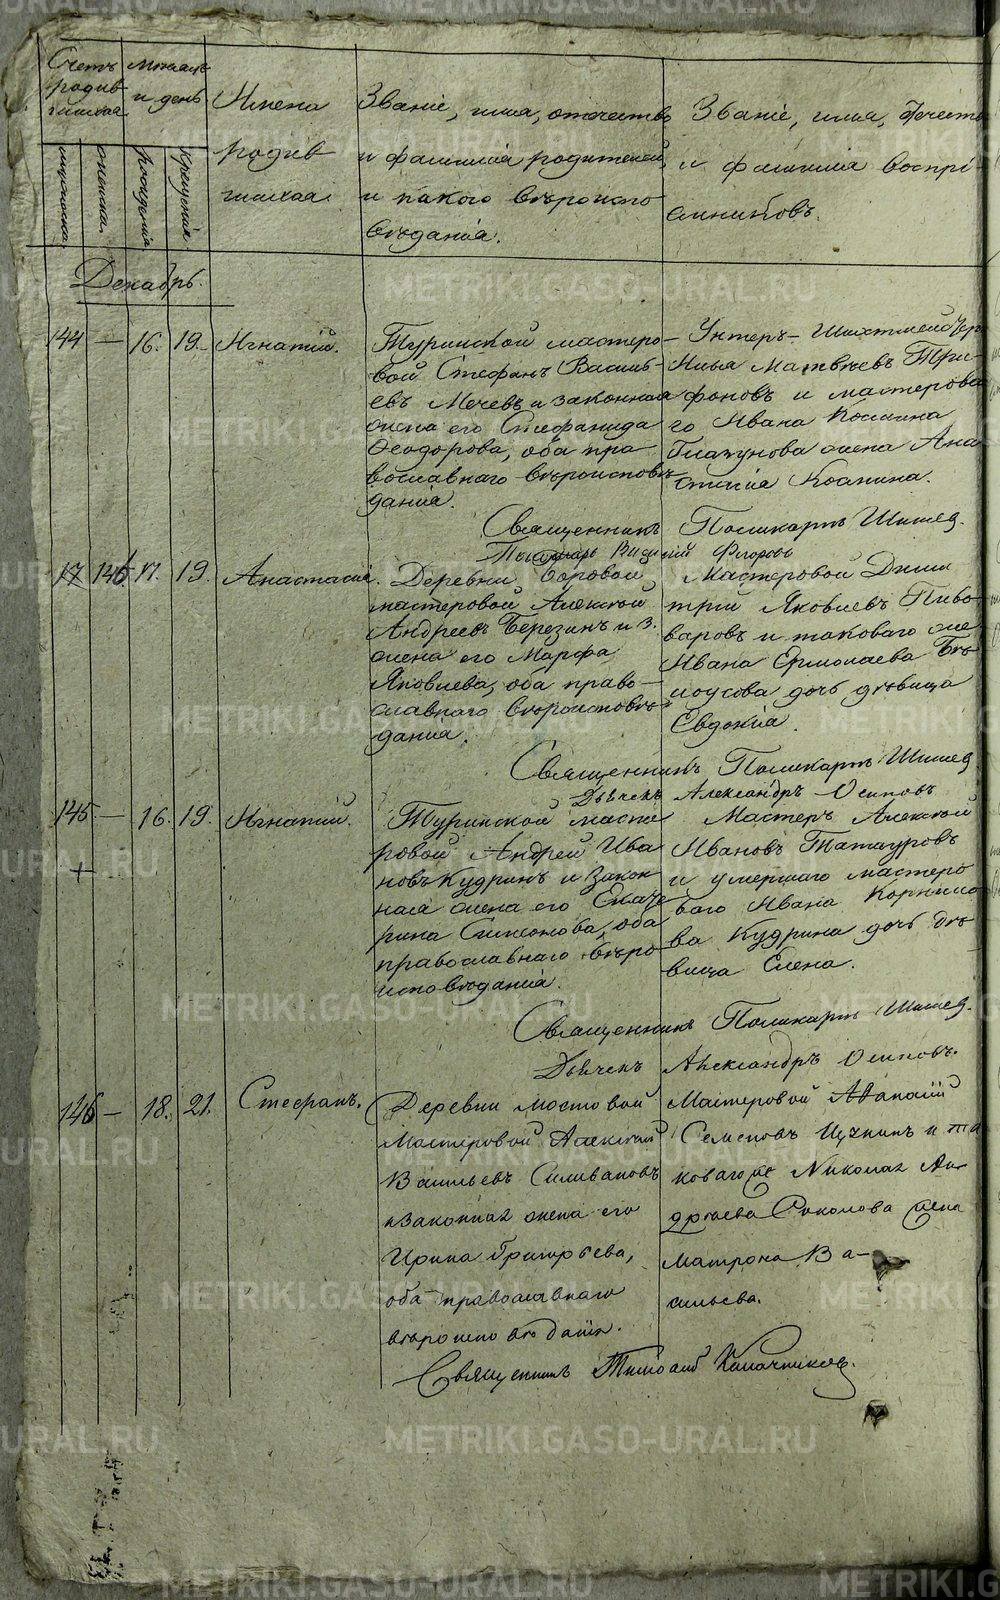 Счетъ родив-шихся
Мѣсяцъ и день
Имена родив-шихся
Званіе, имя, отчество
и фамилія родителей,
и какого вѣроиспо-
вѣданія.
Званіе, имя, отчество
и фамилія воспрі-
емниковъ.
мужеска.
женска.
рожденія
крещенія
Декабрь.
144 — 16. 19. Игнатій.
Туринской мастеро-
вой Стефанъ Василь-
евъ Мечевъ и законная
жена его Стефанида
Ѳеодорова, оба пра-
вославнаго вѣроисповѣ-
данія.
Унтеръ-Шихтмейстеръ
Илья Матвѣевъ Три-
фоновъ и мастерова-
го Ивана Космина
Глазунова жена Ана-
стасія Космина.
Священникъ Поликарпъ Шишев.
17 146 17. 19. Анастасія.
Деревни Боровой
мастеровой Алексѣй
Андреевъ Березинъ и з.
жена его Марфа
Яковлева, оба право-
славнаго вѣроисповѣ-
данія.
Мастеровой Дими
трій Яковлевъ Пиво-
варовъ и таковаго же
Ивана Ермолаева Бѣ-
лоусова дочь дѣвица
Евдокія.
Священникъ Поликарпъ Шишев
Дьячекъ Александръ Осиповъ
145 — 16. 19. Игнатій.
+
Туринской масте
ровой Андрей Ива
новъ Кудринъ и закон
ная жена его Екате
рина Симонова, оба
православнаго вѣро
исповѣданія.
Мастеръ Алексѣй
Ивановъ Татауровъ
и умершаго мастеро
ваго Ивана Корнило
ва Кудрина дочь дѣ
вица Елена.
Священникъ Поликарпъ Шишев.
Дьячекъ Александръ Осиповъ.
146 — 18. 21. Стефанъ.
Деревни Мостовой
Мастеровой Алексѣй
Васильевъ Силивановъ
и законная жена его
Ирина Григорьева,
оба православнаго
вѣроисповѣданія.
Мастеровой Аѳанасій
Семеновъ и та
коваго же Николая Ан
дреева Соколова жена
Матрона Ва-
сильева.
Священникъ Тимоѳей
METRIKI.GASO-URAL.RU